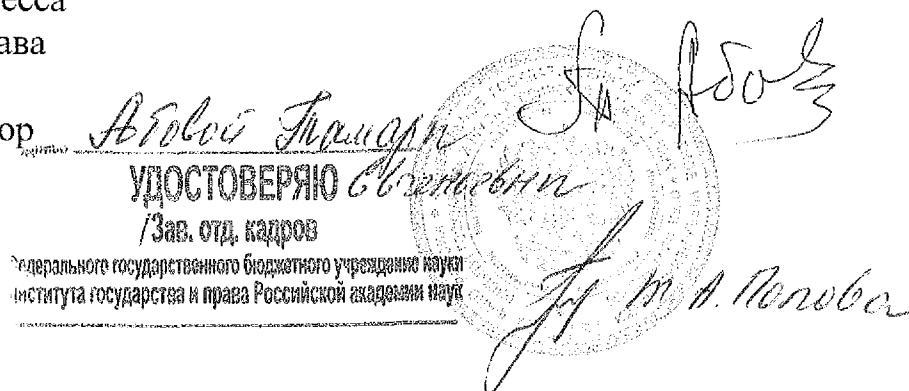 есса
ава
ор
Абовой Тамары
Т. Або
УДОСТОВЕРЯЮ Евгеньевны
/Зав. отд. кадров
Федерального государственного бюджетного учреждение науки
Института государства и права Российской академии наук
Т. А. Попова